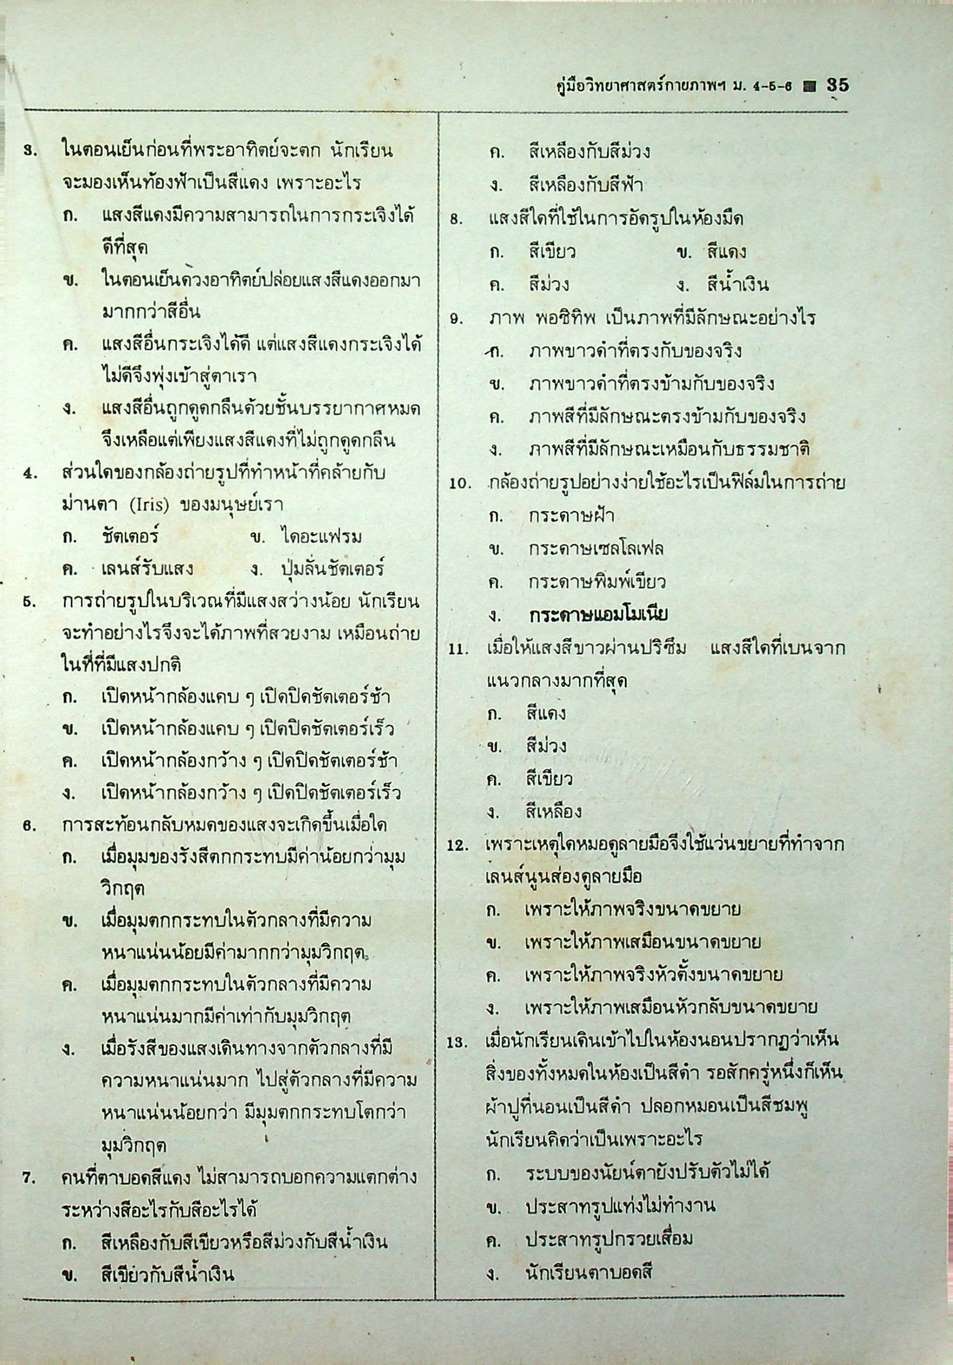 คู่มือวิทยาศาสตร์กายภาพฯ ม. 4-5-6 ■ 35
3. ในตอนเย็นก่อนที่พระอาทิตย์จะตก นักเรียน
จะมองเห็นท้องฟ้าเป็นสีแดง เพราะอะไร
ก. แสงสีแดงมีความสามารถในการกระเจิงได้
ดีที่สุด
ข. ในตอนเย็นดวงอาทิตย์ปล่อยแสงสีแดงออกมา
มากกว่าสีอื่น
ค. แสงสีอื่นกระเจิงได้ดี แต่แสงสีแดงกระเจิงได้
ไม่ดีจึงพุ่งเข้าสู่ตาเรา
ง. แสงสีอื่นถูกดูดกลืนด้วยชั้นบรรยากาศหมด
จึงเหลือแต่เพียงแสงสีแดงที่ไม่ถูกดูดกลืน
4. ส่วนใดของกล้องถ่ายรูปที่ทำหน้าที่คล้ายกับ
ม่านตา (Iris) ของมนุษย์เรา
ก. ชัตเตอร์ ข. ไดอะแฟรม
ค. เลนส์รับแสง ง. ปุ่มลั่นชัตเตอร์
5. การถ่ายรูปในบริเวณที่มีแสงสว่างน้อย นักเรียน
จะทำอย่างไรจึงจะได้ภาพที่สวยงาม เหมือนถ่าย
ในที่ที่มีแสงปกติ
ก. เปิดหน้ากล้องแคบ ๆ เปิดปิดชัตเตอร์ช้า
ข. เปิดหน้ากล้องแคบ ๆ เปิดปิดชัตเตอร์เร็ว
ค. เปิดหน้ากล้องกว้าง ๆ เปิดปิดชัตเตอร์ช้า
ง. เปิดหน้ากล้องกว้าง ๆ เปิดปิดชัตเตอร์เร็ว
6. การสะท้อนกลับหมดของแสงจะเกิดขึ้นเมื่อใด
ก. เมื่อมุมของรังสีตกกระทบมีค่าน้อยกว่ามุม
วิกฤต
ข. เมื่อมุมตกกระทบในตัวกลางที่มีความ
หนาแน่นน้อยมีค่ามากกว่ามุมวิกฤต
ค. เมื่อมุมตกกระทบในตัวกลางที่มีความ
หนาแน่นมากมีค่าเท่ากับมุมวิกฤต
ง. เมื่อรังสีของแสงเดินทางจากตัวกลางที่มี
ความหนาแน่นมาก ไปสู่ตัวกลางที่มีความ
หนาแน่นน้อยกว่า มีมุมตกกระทบโตกว่า
มุมวิกฤต
7. คนที่ตาบอดสีแดง ไม่สามารถบอกความแตกต่าง
ระหว่างสีอะไรกับสีอะไรได้
ก. สีเหลืองกับสีเขียวหรือสีม่วงกับสีน้ำเงิน
ข. สีเขียวกับสีน้ำเงิน
ค. สีเหลืองกับสีม่วง
ง. สีเหลืองกับสีฟ้า
8. แสงสีใดที่ใช้ในการอัดรูปในห้องมืด
ก. สีเขียว ข. สีแดง
ค. สีม่วง ง. สีน้ำเงิน
9. ภาพ พอซิทิพ เป็นภาพที่มีลักษณะอย่างไร
ก. ภาพขาวดำที่ตรงกับของจริง
ข. ภาพขาวดำที่ตรงข้ามกับของจริง
ค. ภาพสีที่มีลักษณะตรงข้ามกับของจริง
ง. ภาพสีที่มีลักษณะเหมือนกับธรรมชาติ
10. กล้องถ่ายรูปอย่างง่ายใช้อะไรเป็นฟิล์มในการถ่าย
ก. กระดาษฝ้า
ข. กระดาษเซลโลเฟล
ค. กระดาษพิมพ์เขียว
ง. กระดาษแอมโมเนีย
11. เมื่อให้แสงสีขาวผ่านปริซึม แสงสีใดที่เบนจาก
แนวกลางมากที่สุด
ก. สีแดง
ข. สีม่วง
ค. สีเขียว
ง. สีเหลือง
12. เพราะเหตุใดหมอดูลายมือจึงใช้แว่นขยายที่ทำจาก
เลนส์นูนส่องดูลายมือ
ก. เพราะให้ภาพจริงขนาดขยาย
ข. เพราะให้ภาพเสมือนขนาดขยาย
ค. เพราะให้ภาพจริงหัวตั้งขนาดขยาย
ง. เพราะให้ภาพเสมือนหัวกลับขนาดขยาย
13. เมื่อนักเรียนเดินเข้าไปในห้องนอนปรากฏว่าเห็น
สิ่งของทั้งหมดในห้องเป็นสีดำ รอสักครู่หนึ่งก็เห็น
ผ้าปูที่นอนเป็นสีดำ ปลอกหมอนเป็นสีชมพู
นักเรียนคิดว่าเป็นเพราะอะไร
ก. ระบบของนัยน์ตายังปรับตัวไม่ได้
ข. ประสาทรูปแท่งไม่ทำงาน
ค. ประสาทรูปกรวยเสื่อม
ง. นักเรียนตาบอดสี